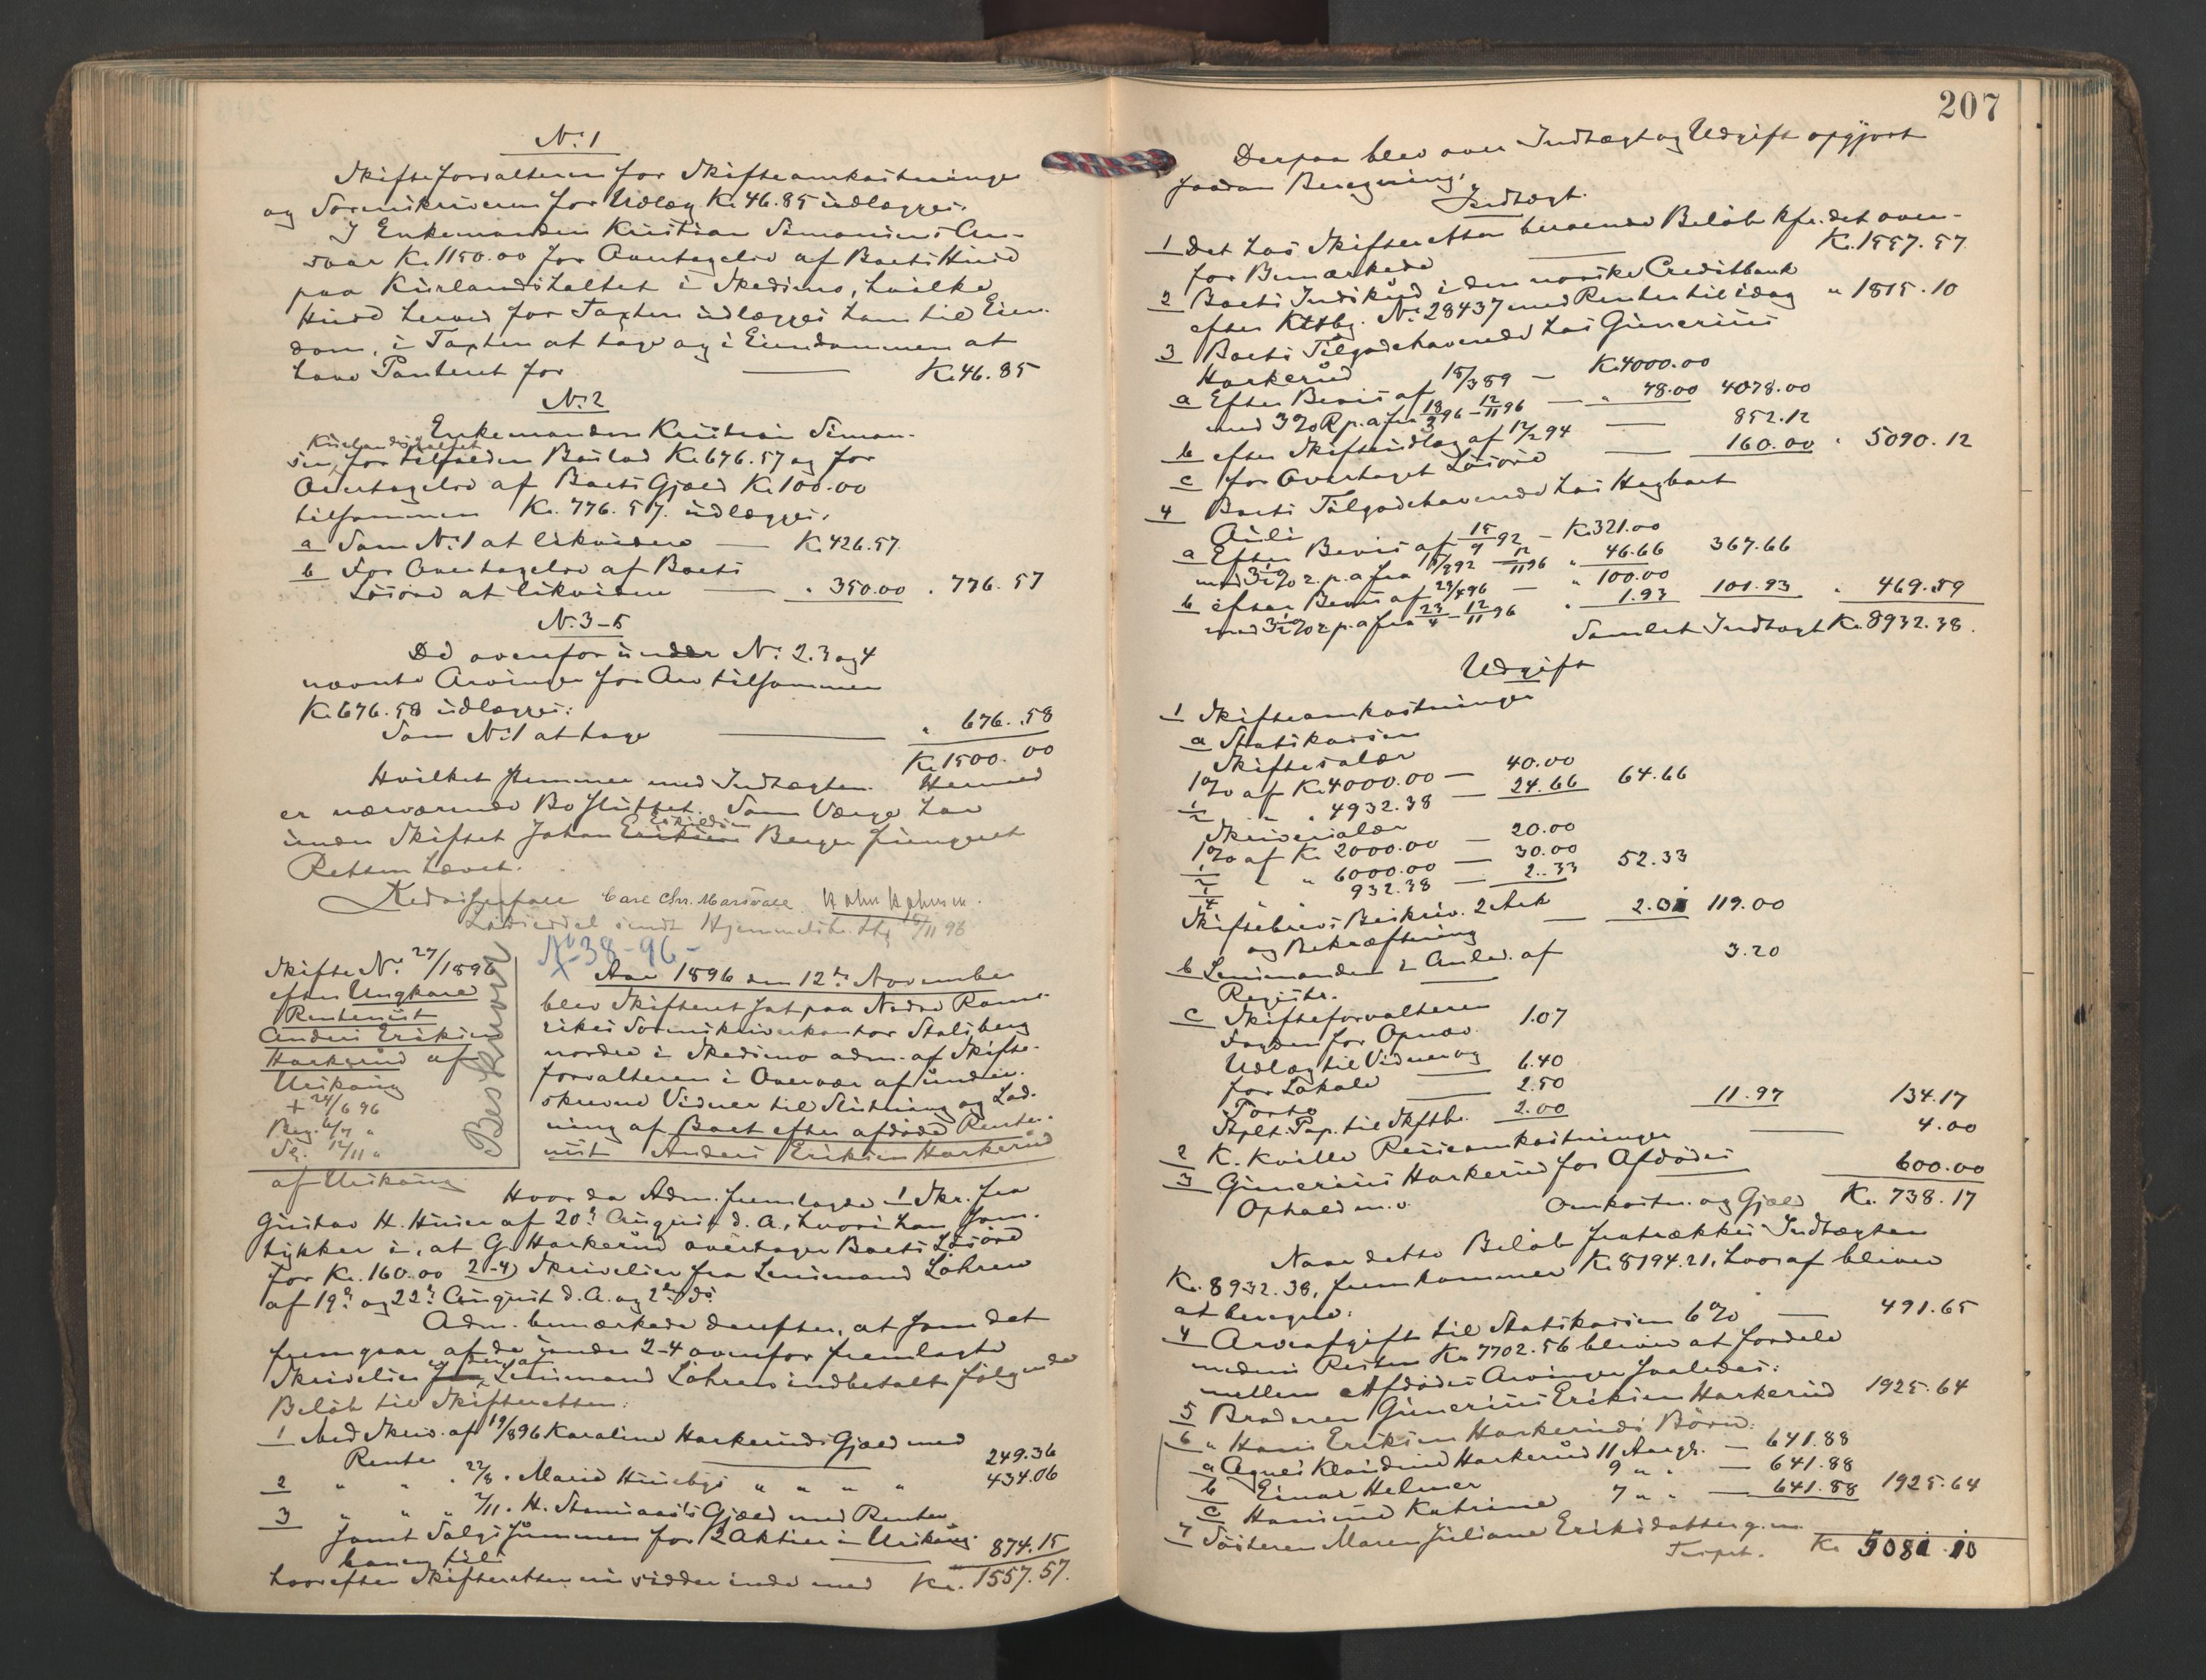 No. 1
Skifteforvalteren for Skifteomkostninger
og Sorenskriveren for Udlæg Kr. 46.85 udlægges.
I Enkemanden Kristian Simonsens An-
svar Kr. 1150.00 for Overtagelse af Boets Huse
paa Kurlandshaltet i Skedsmo, hvilke
Huse herved for Taxten udlægges ham til Eien-
dom, i Taxten at tage og i Eiendommen at
have Panteret for Kr. 46.85
No. 2
Enkemanden Kristian Simon-
Kurlandshaltet
sen, for tilfalden Boslod Kr. 676.57 og for
Overtagelse af Boets Gjæld Kr. 100.00
tilsammen Kr. 776.57 udlægges:
a Som No. 1 at likvidere — Kr. 426.57
b For Overtagelse af Boets
Løsøre at likvidere — " 350.00 " 776.57
No. 3-5
De ovenfor under No. 2. 3 og 4
nævnte Arvinger for Arv tilsammen
Kr. 676.58 udlægges:
Som No. 1 at tage — " 676.58
Kr. 1500.00
Hvilket stemmer med Indtægten. Hermed
er nærværende Bo sluttet. Som Værge har
Eskildsen
under Skiftet Johan Eriksen Berger fungeret
Retten hævet.
Carl Chr.
sendt Hjemmelsh.
11 96
No 38-96-
Skifte No. 27/1896
efter Ungkarl
Rentenist
Anders Eriksen
Harkerud af
Urskoug
+ 24/6 96
Reg. 6/7 "
Sl. 12/11 "
Beskrevet
Aar 1896 den 12te November
blev Skifteret sat paa Nedre Rome-
rikes Sorenskriverkontor Stalsberg
nordre i Skedsmo adm. af Skifte-
forvalteren i Overvær af under-
skrevne Vidner til Slutning og Lod-
ning af Boet efter afdøde Rente-
nist Anders Eriksen Harkerud
af Urskoug.
Hvor da Adm. fremlagde 1 Skr. fra
Gustav H. Huser af 20de August d. A., hvori han sam-
tykker i, at G. Harkerud overtager Boets Løsøre
for Kr. 160.00 2-4) Skrivelser fra Lensmand Løhren
af 19de og 22de August d. A. og 2den ds.
Adm. bemærkede derefter, at som det
fremgaar af de under 2-4 ovenfor fremlagte
er der af
Skrivelser fra Lensmand Løhren indbetalt følgende
Beløb til Skifteretten:
1 Med Skriv. af 19/8 96 Karoline Harkeruds Gjæld med
Renter — 249.36
2 " " " 22/8 " Marie Husebys " " " " 434.06
3 " " " 2/11 " H. Gjæld med Renter
samt Salgssummen for 2 Aktier i Urskoug-
banen til — 874.15
hvorefter Skifteretten nu sidder inde med Kr. 1557.57.
207
Derpaa blev over Indtægt og Udgift opgjort
saadan Beregning:
Indtægt.
1 Det hos Skifteretten beroende Beløb kfr. det oven-
for Bemærkede — Kr. 1557.57
2 Boets Indskud i den norske Creditbank
efter Kttbg. No. 28437 med Renter til idag " 1815.10
3 Boets Tilgodehavende hos Gunerius
Harkerud
a Efter Bevis af 18/3 89 — Kr. 4000.00
med 3% R. p. a. fra 18/3 96 – 12/11 96 — " 78.00 4078.00
b efter Skifteudlæg af 12/2 94 — 852.12
c for Overtaget Løsøre — 160.00 " 5090.12
4 Boets Tilgodehavende hos Hagbart
Auli
a Efter Bevis af 15/9 92 – Kr. 321.00
med 3½% r. p. a. fra 15/9 92 – 12/11 96 " 46.66 367.66
b efter Bevis af 23/4 96 — " 100.00
med 3½% r. p. a. fra 23/4 – 12/11 96 " 1.93 101.93 " 469.59
Samlet Indtægt Kr. 8932.38.
Udgift
1 Skifteomkostninger
a Statskassen
Skiftesalær
1% af Kr. 4000.00 — 40.00
½ " " 4932.38 — 24.66 64.66
Skriversalær
1% af Kr. 2000.00 — 20.00
½ " " 6000.00 — 30.00
¼ 932.38 — 2.33 52.33
Skiftebrevs Beskriv. 2 Ark
og Bekræftning — 2.01 119.00
b Lensmanden i Anled. af
Registr. — 3.20
c Skifteforvalteren
Fogden for Opnav. 1.07
Udlæg til Vidner og
for Lokale — 6.40
Porto — 2.50
Stplt. Pap. til Skftbr. 2.00 11.97 134.17
2 K. Kville Reiseomkostninger — 4.00
3 Gunerius Harkerud for Afdødes
Ophold m. v. 600.00
Omkostn. og Gjæld Kr. 738.17
Naar dette Beløb fratrækkes Indtægten
Kr. 8932.38, fremkommer Kr. 8194.21, hvoraf bliver
at beregne:
4 Arveafgift til Statskassen 6% — 491.65
medens Resten Kr. 7702.56 bliver at fordele
mellem Afdødes Arvinger saaledes:
5 Broderen Gunerius Eriksen Harkerud 1925.64
6 " Hans Eriksen Harkeruds Børn:
a Agnes Klaudine Harkerud 11 Aar gl. — 641.88
b Einar Helmer 9 " " — 641.88
c Hansine Katrine 7 " " — 641.88 1925.64
7 Søsteren Maren Juliane Eriksdatter g. m.
Trspt. Kr. 5081.10